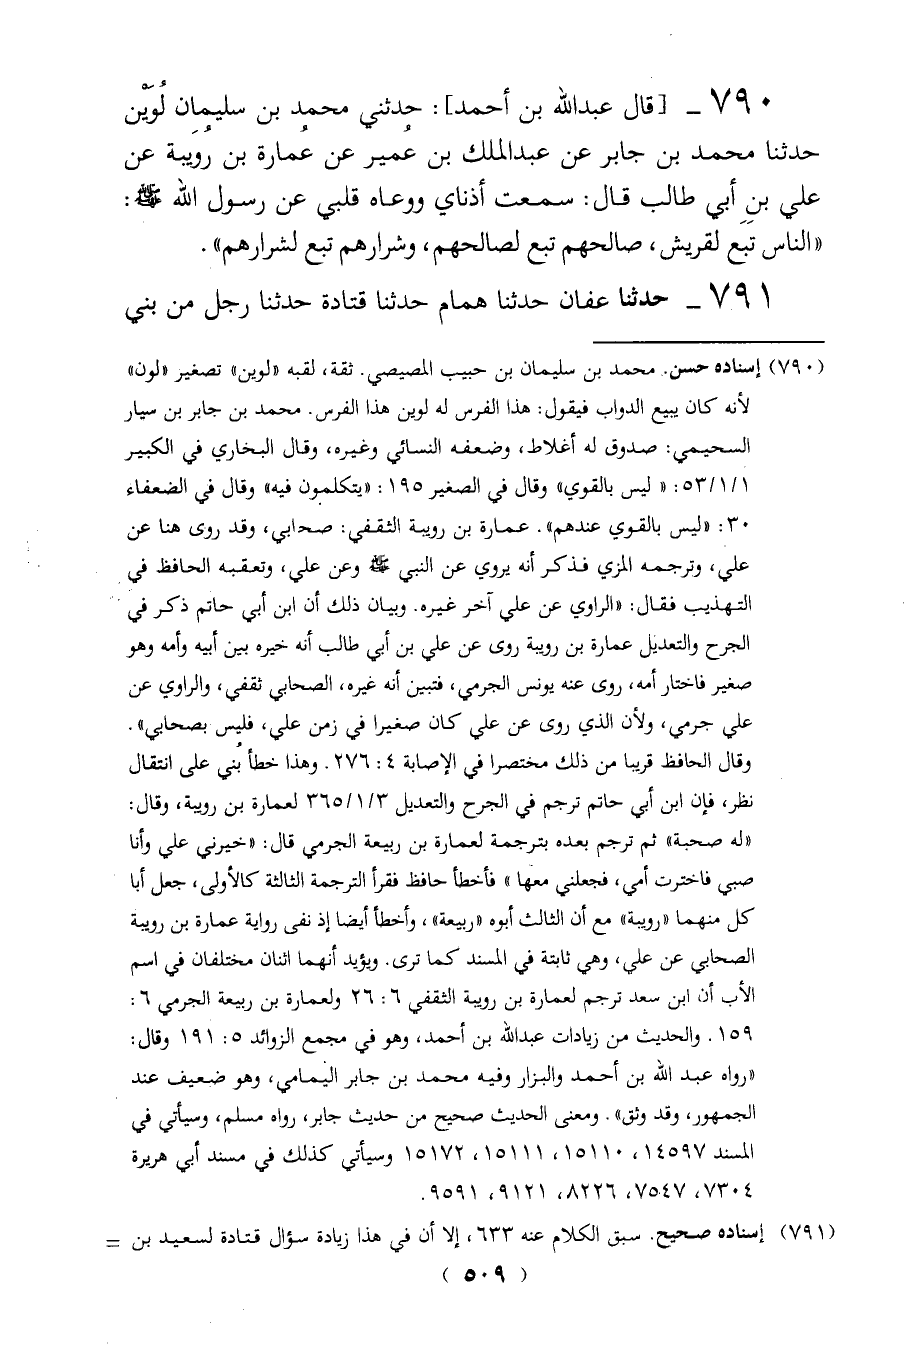 ٧٩٠ ـ [قال عبدالله بن أحمد]: حدثني محمد بن سليمان لُوَيْن
حدثنا محمد بن جابر عن عبدالملك بن عُمير عن عمارة بن رُويبة عن
علي بن أبي طالب قال: سمعت أذناي ووعاه قلبي عن رسول الله ﷺ:
«الناس تَبَع لقريش، صالحهم تبع لصالحهم، وشرارهم تبع لشرارهم».
٧٩١ ـ حدثنا عفان حدثنا همام حدثنا قتادة حدثنا رجل من بني
(٧٩٠) إسناده حسن. محمد بن سليمان بن حبيب المصيصي. ثقة، لقبه «لوين» تصغير «لون»
لأنه كان يبيع الدواب فيقول: هذا الفرس له لوين هذا الفرس. محمد بن جابر بن سيار
السحيمي: صدوق له أغلاط، وضعفه النسائي وغيره، وقال البخاري في الكبير
٥٣/١/١: « ليس بالقوي» وقال في الصغير ١٩٥ : «يتكلمون فيه» وقال في الضعفاء
٣٠: «ليس بالقوي عندهم». عمارة بن رويبة الثقفي: صحابي، وقد روى هنا عن
علي، وترجمه المزي فذكر أنه يروي عن النبي ﷺ وعن علي، وتعقبه الحافظ في
التهذيب فقال: «الراوي عن علي آخر غيره. وبيان ذلك أن ابن أبي حاتم ذكر في
الجرح والتعديل عمارة بن رويبة روى عن علي بن أبي طالب أنه خيره بين أبيه وأمه وهو
صغير فاختار أمه، روى عنه يونس الجرمي، فتبين أنه غيره، الصحابي ثقفي، والراوي عن
علي جرمي، ولأن الذي روى عن علي كان صغيرا في زمن علي، فليس بصحابي».
وقال الحافظ قريبا من ذلك مختصرا في الإصابة ٤: ٢٧٦. وهذا خطأ بُني على انتقال
نظر، فإن ابن أبي حاتم ترجم في الجرح والتعديل ٣٦٥/١/٣ لعمارة بن رويبة، وقال:
«له صحبة» ثم ترجم بعده بترجمة لعمارة بن ربيعة الجرمي قال: «خيرني علي وأنا
صبي فاخترت أمي، فجعلني معها » فأخطأ حافظ فقرأ الترجمة الثالثة كالأولى، جعل أبا
كل منهما «رويبة» مع أن الثالث أبوه «ربيعة»، وأخطأ أيضا إذ نفى رواية عمارة بن رويبة
الصحابي عن علي، وهي ثابتة في المسند كما ترى. ويؤيد أنهما اثنان مختلفان في اسم
الأب أن ابن سعد ترجم لعمارة بن رويبة الثقفي ٦: ٢٦ ولعمارة بن ربيعة الجرمي ٦:
١٥٩. والحديث من زيادات عبدالله بن أحمد، وهو في مجمع الزوائد ٥: ١٩١ وقال:
«رواه عبد الله بن أحمد والبزار وفيه محمد بن جابر اليمامي، وهو ضعيف عند
الجمهور، وقد وثق». ومعنى الحديث صحيح من حديث جابر، رواه مسلم، وسيأتي في
المسند ١٤٥٩٧، ١٥١١٠، ١٥١١١، ١٥١٧٢ وسيأتي كذلك في مسند أبي هريرة
٧٣٠٤، ٧٥٤٧، ٨٢٢٦، ٩١٢١، ٩٥٩١.
(٧٩١) إسناده صحيح. سبق الكلام عنه ٦٣٣، إلا أن في هذا زيادة سؤال قتادة لسعيد بن =
( ٥٠٩ )